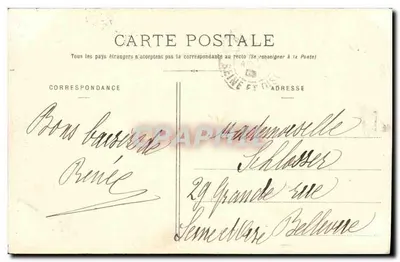 CARTE POSTALE
Tous les pays étrangers n'acceptent pas la correspondance au recto (Se renseigner à la Poste)
SEINE ET OISE
CORRESPONDANCE
ADRESSE
Bons baisers de
Renée
Mademoiselle
Schlosser
29 Grande rue
Bellevue